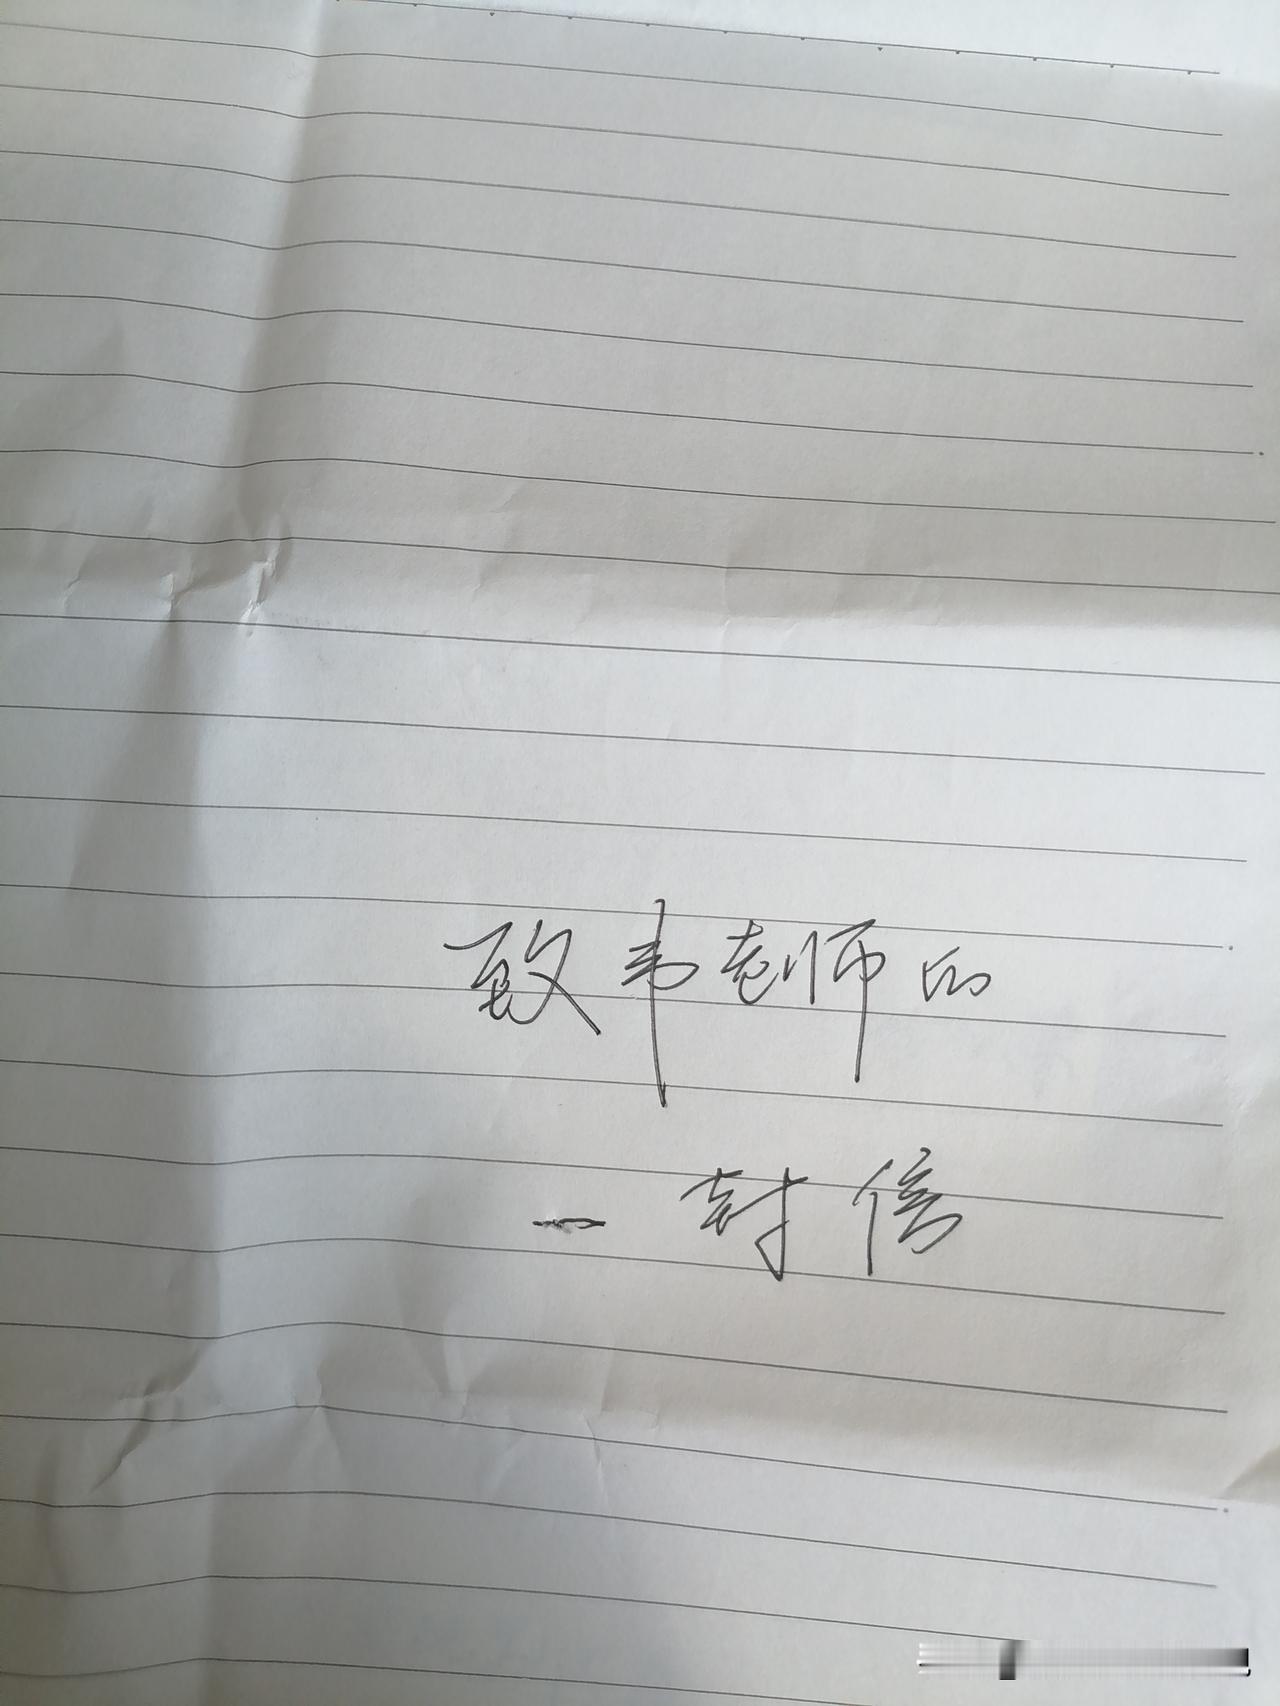 致韦老师的
一封信